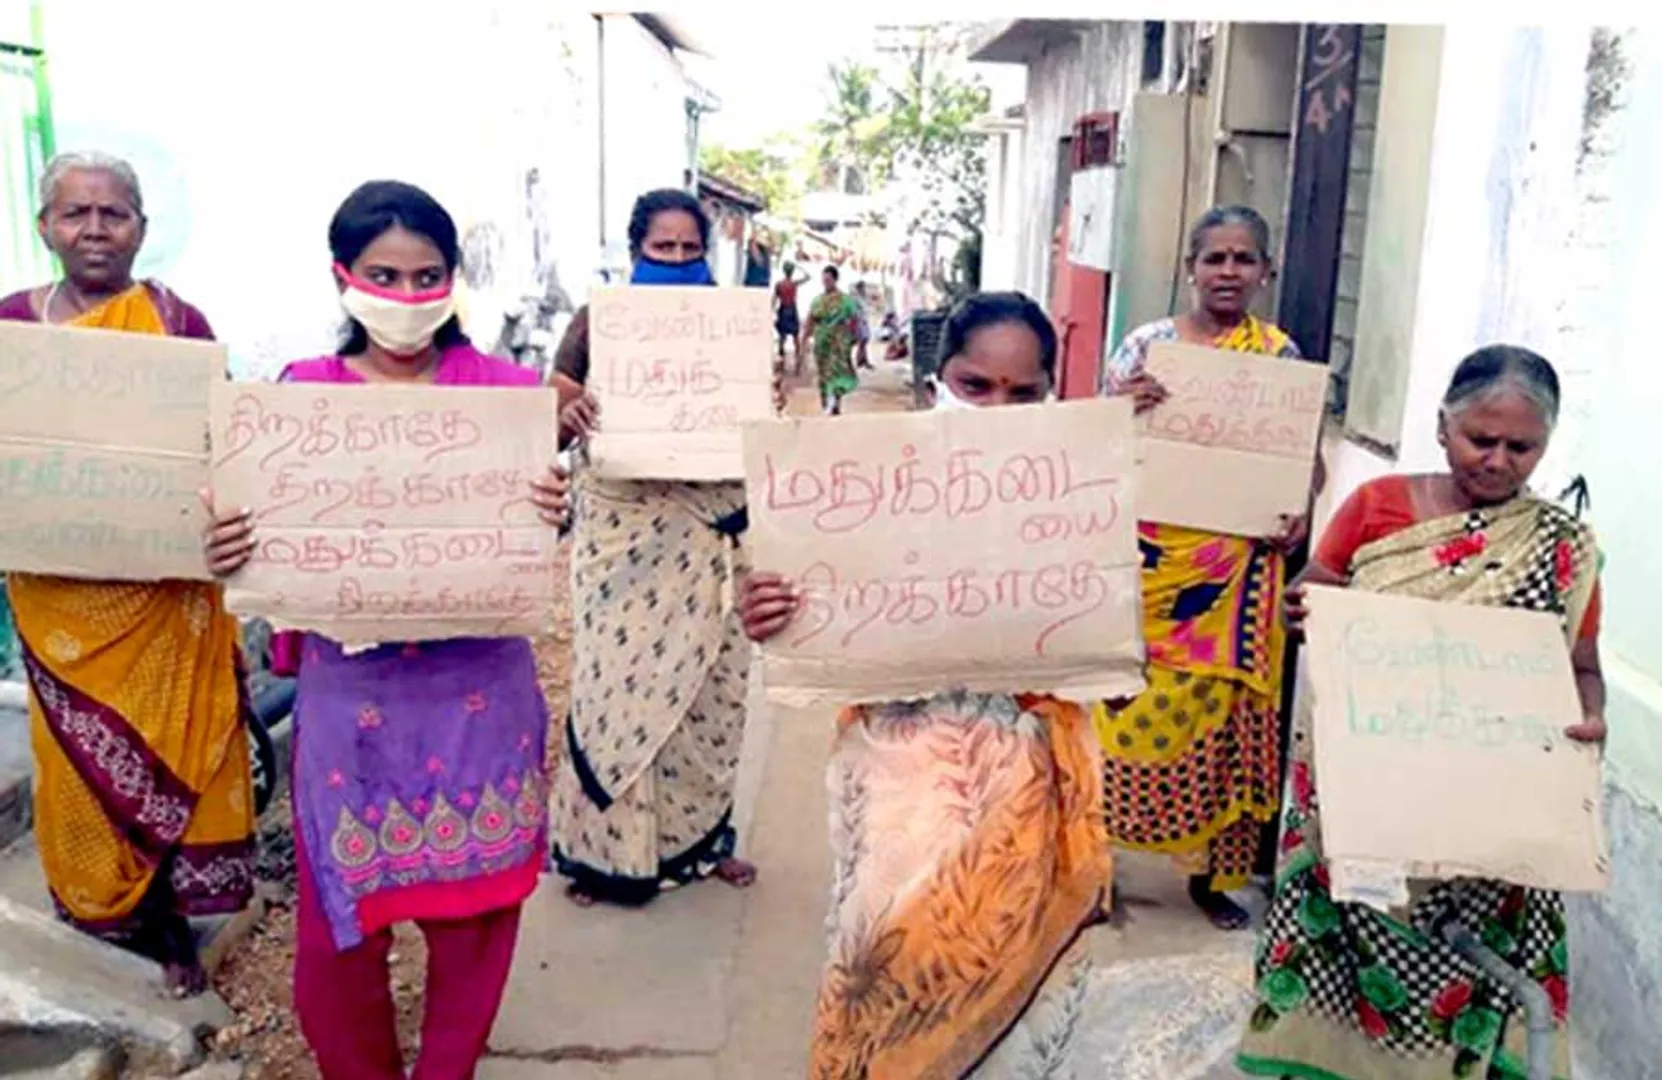 மதுக்கடை
வேண்டாம்
திறக்காதே
திறக்காதே
மதுக்கடை
திறக்காதே
வேண்டாம்
மதுக்
கடை
மதுக்கடை
யை
திறக்காதே
வேண்டாம்
மதுக்கடை
வேண்டாம்
மதுக்கடை
3/4A